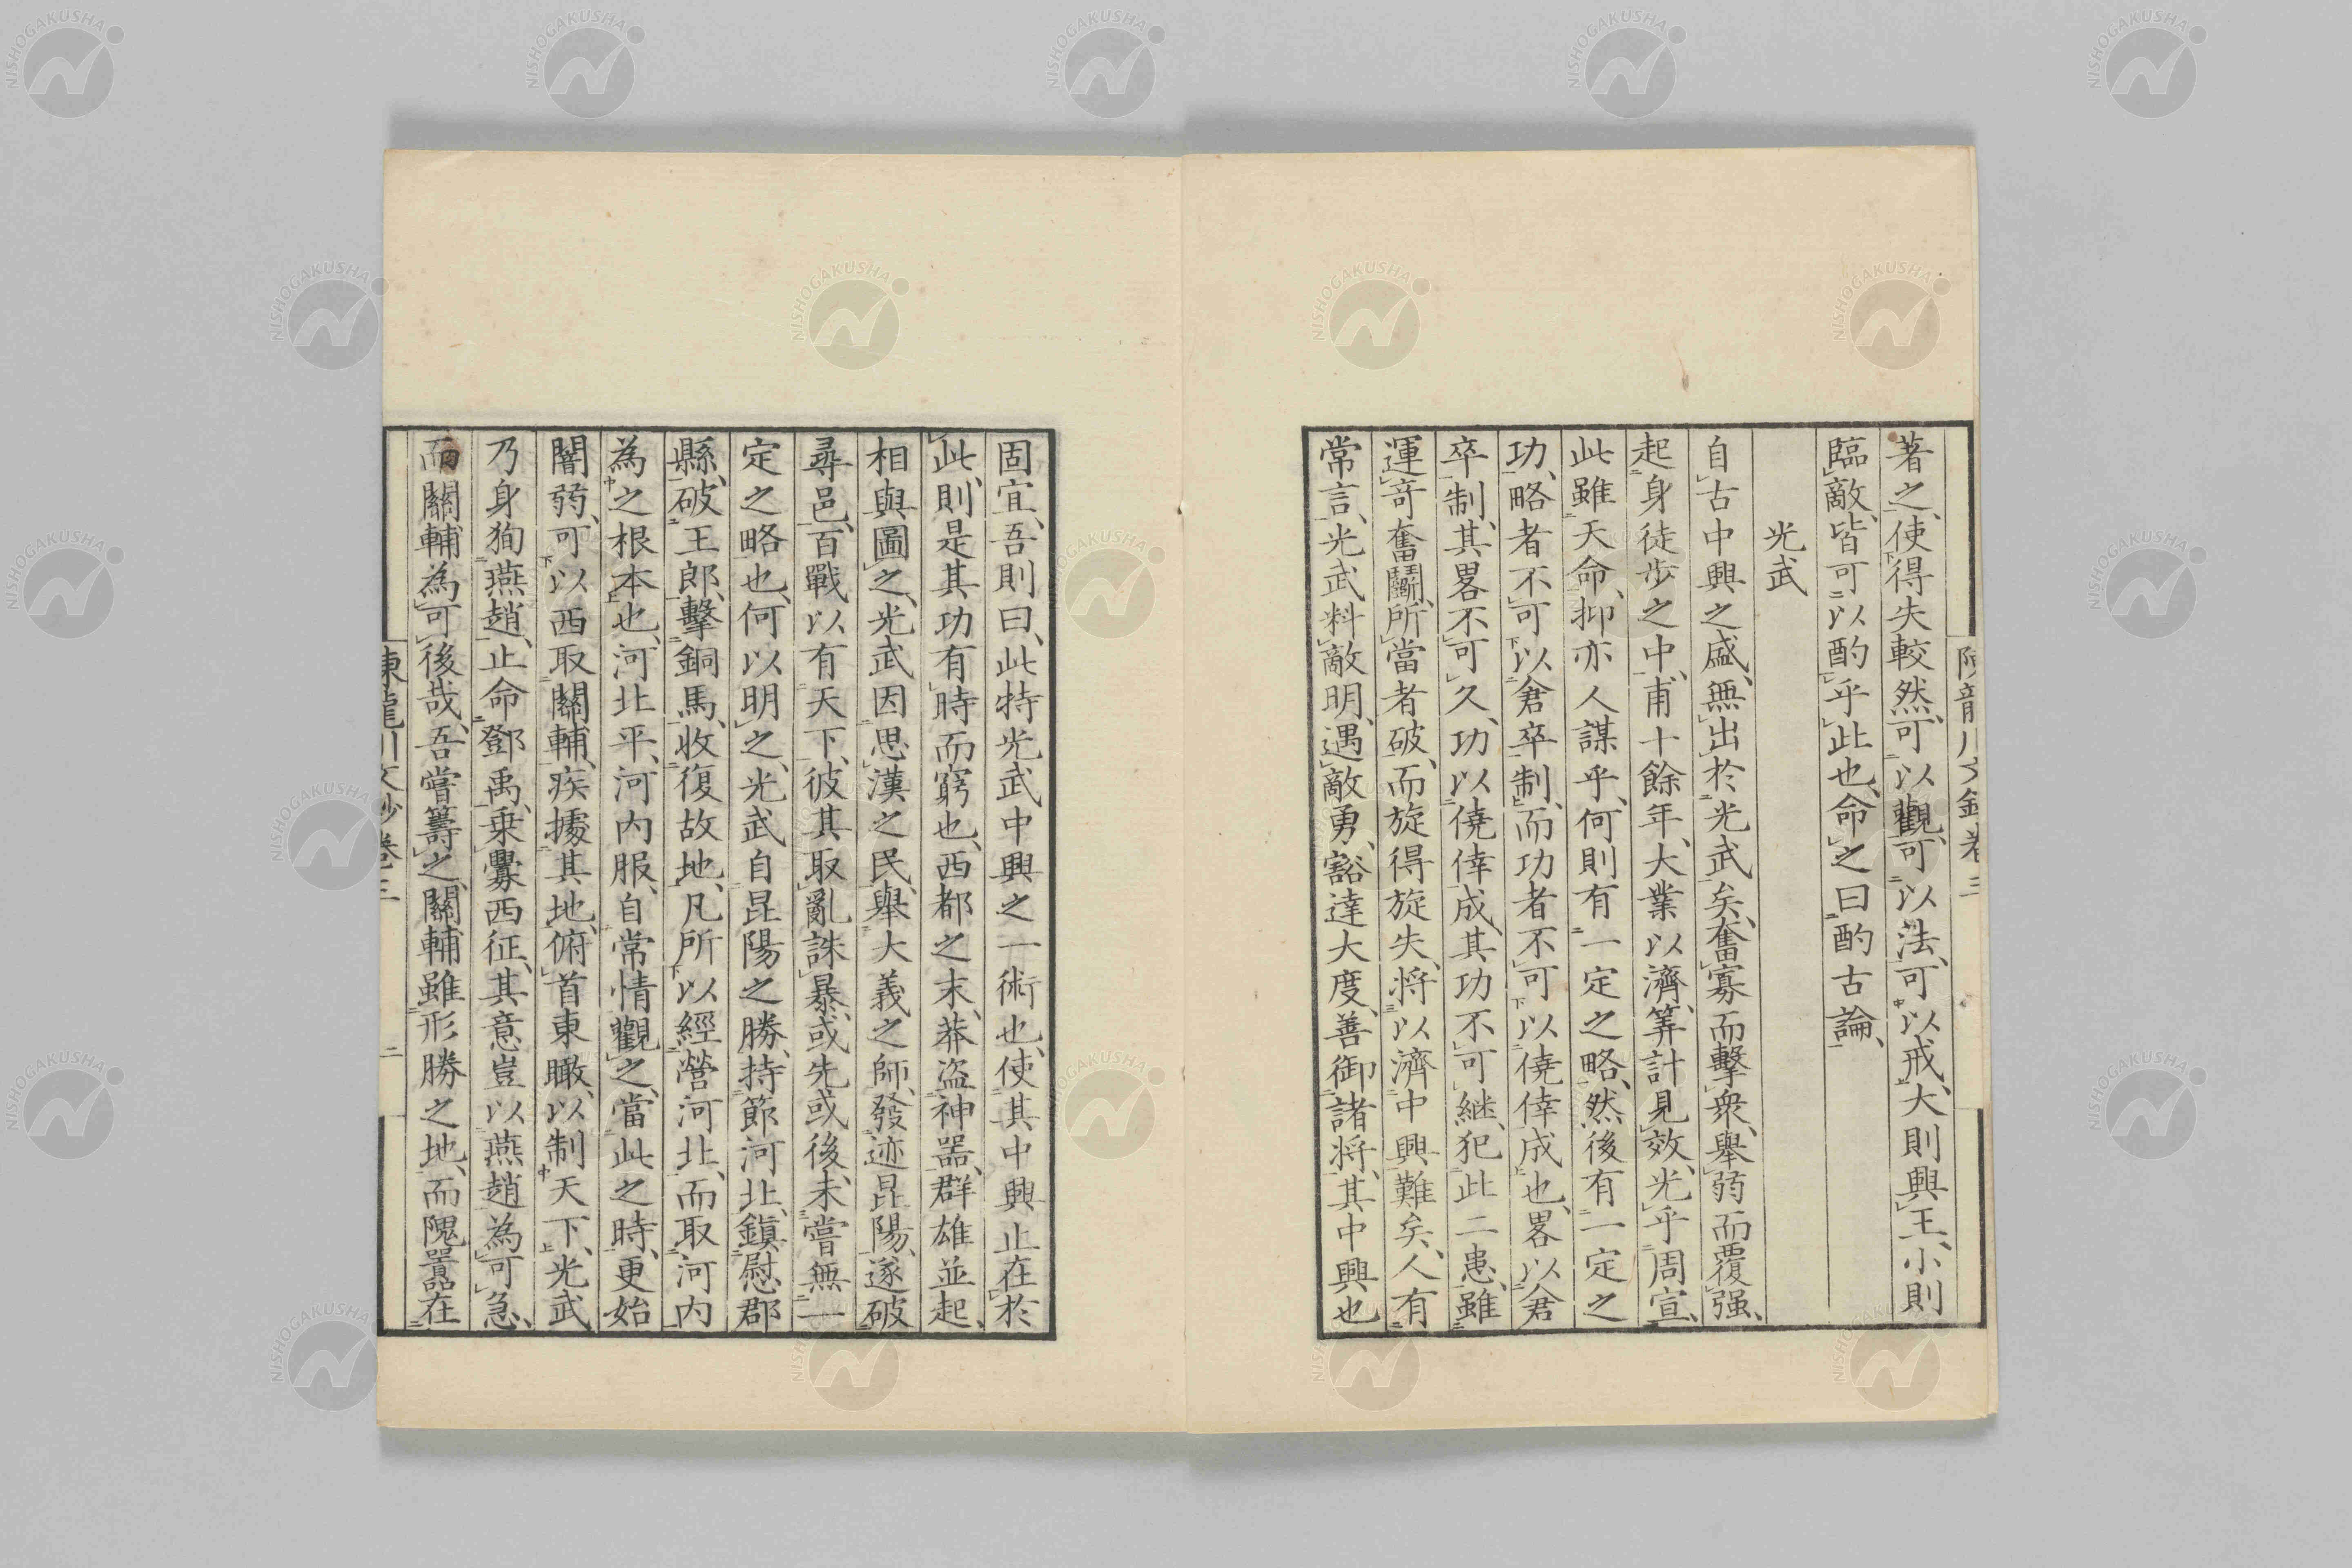 著之、使得失較然、可以觀、可以法、可以戒、大則興王、小則
臨敵、皆可以酌乎此也、命之曰酌古論、
光武
自古中興之盛、無出於光武矣、奮寡而擊衆、舉弱而覆强、
起身徒步之中、甫十餘年、大業以濟、筭計見效、光乎周宣、
此雖天命、抑亦人謀乎、何則有一定之略、然後有一定之
功、略者不可以倉卒制、而功者不可以僥倖成也、畧以倉
卒制、其畧不可久、功以僥倖成、其功不可継、犯此二患、雖
運奇奮鬭、所當者破、而旋得旋失、将以濟中興難矣、人有
常言、光武料敵明、遇敵勇、豁達大度、善御諸将、其中興也
固宜、吾則曰、此特光武中興之一術也、使其中興止在於
此、則是其功有時而窮也、西都之末、莽盗神噐、群雄並起、
相與圖之、光武因思漢之民、舉大義之師、發迹昆陽、遂破
尋邑、百戰以有天下、彼其取亂誅暴、或先或後、未嘗無一
定之略也、何以明之、光武自昆陽之勝、持節河北、鎭慰郡
縣、破王郎、擊銅馬、收復故地、凡所以經營河北、而取河内
為之根本也、河北平、河内服、自常情觀之、當此之時、更始
闇弱、可以西取關輔、疾據其地、俯首東瞰、以制天下、光武
乃身狥燕趙、止命鄧禹、乗釁西征、其意豈以燕趙為可急、
而關輔為可後哉、吾嘗籌之、關輔雖形勝之地、而隗囂在
陳龍川文鈔卷三
二
NISHOGAKUSHA